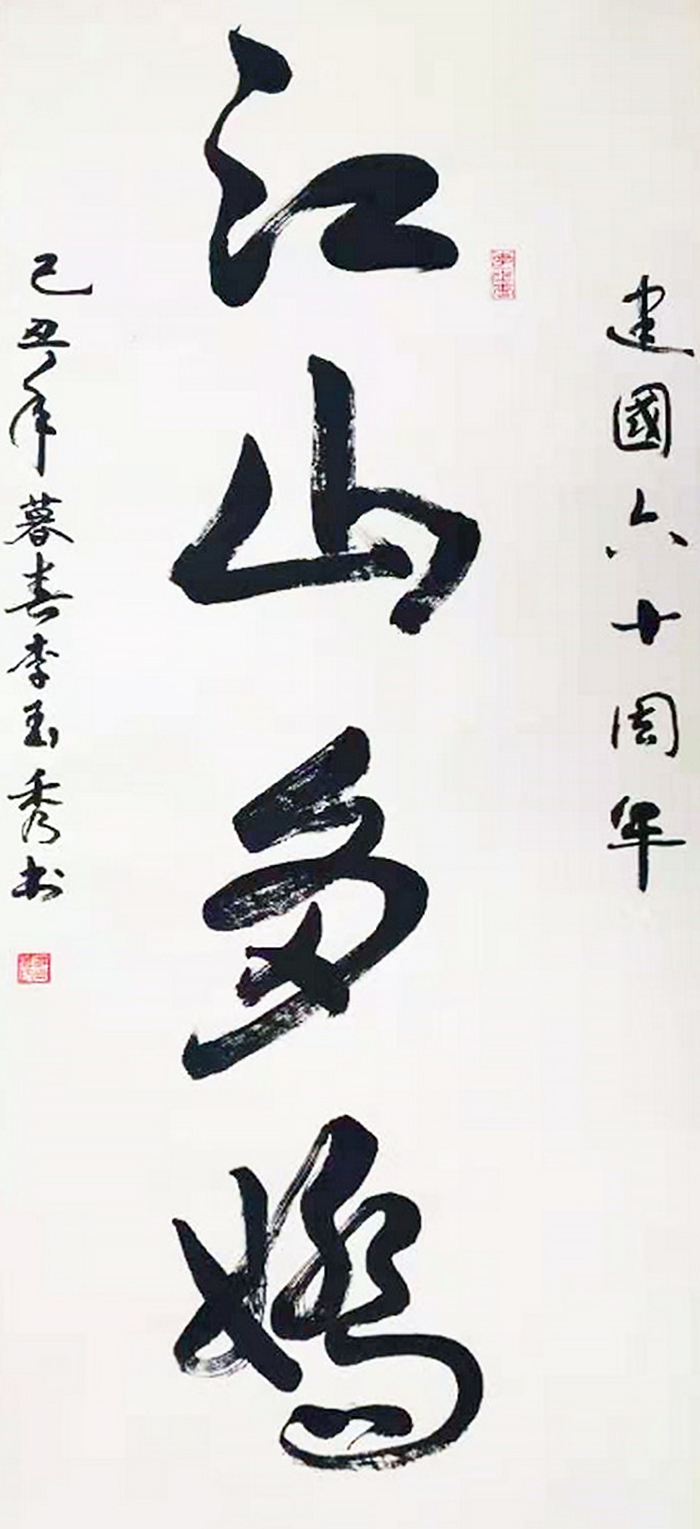 建國六十周年
江山多嬌
己丑年暮春李玉秀书